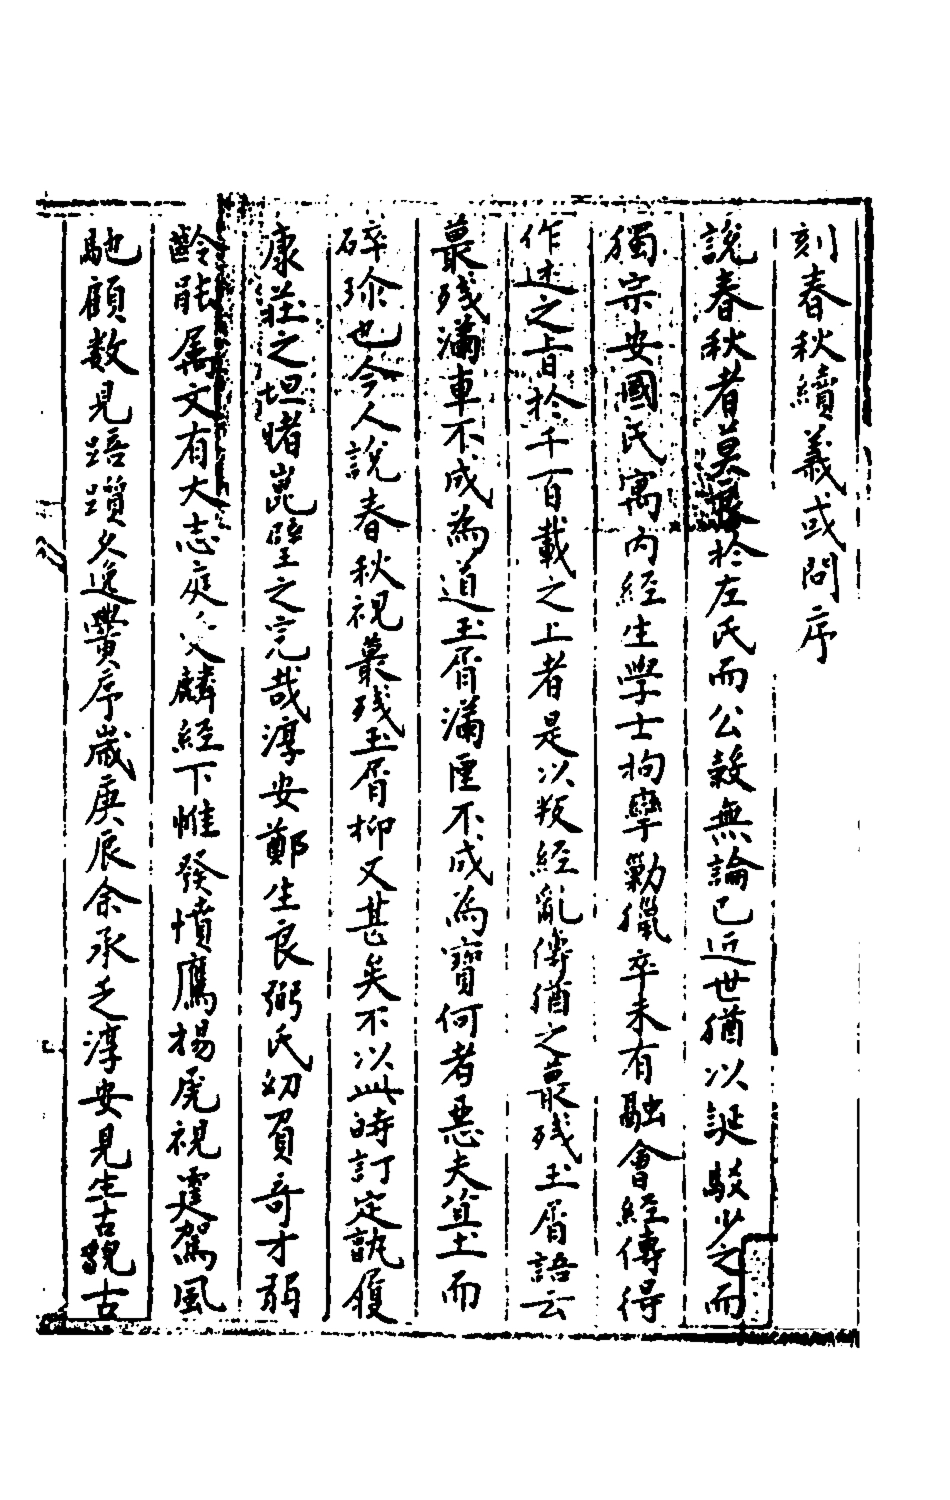 刻春秋續義或問序
說春秋者莫嚴於左氏而公穀無論已近世猶以誕駁少之而
獨宗安國氏寓內經生學士拘攣勦獵卒未有融會經傳得
作述之旨於千百載之上者是以叛經亂傳猶之叢殘玉屑語云
叢殘滿車不成為道玉屑滿匣不成為寶何者惡夫道土而
碎珍也今人說春秋視叢殘玉屑抑又甚矣不以此時訂定孰履
康莊之坦睹崑璧之完哉淳安鄭生良弼氏幼負奇才弱
齡能屬文有大志庭父麟經下惟發憤鷹揚虎視霆駕風
馳顧數見踣躓久逸黌序歲庚辰余承乏淳安見生古貌古